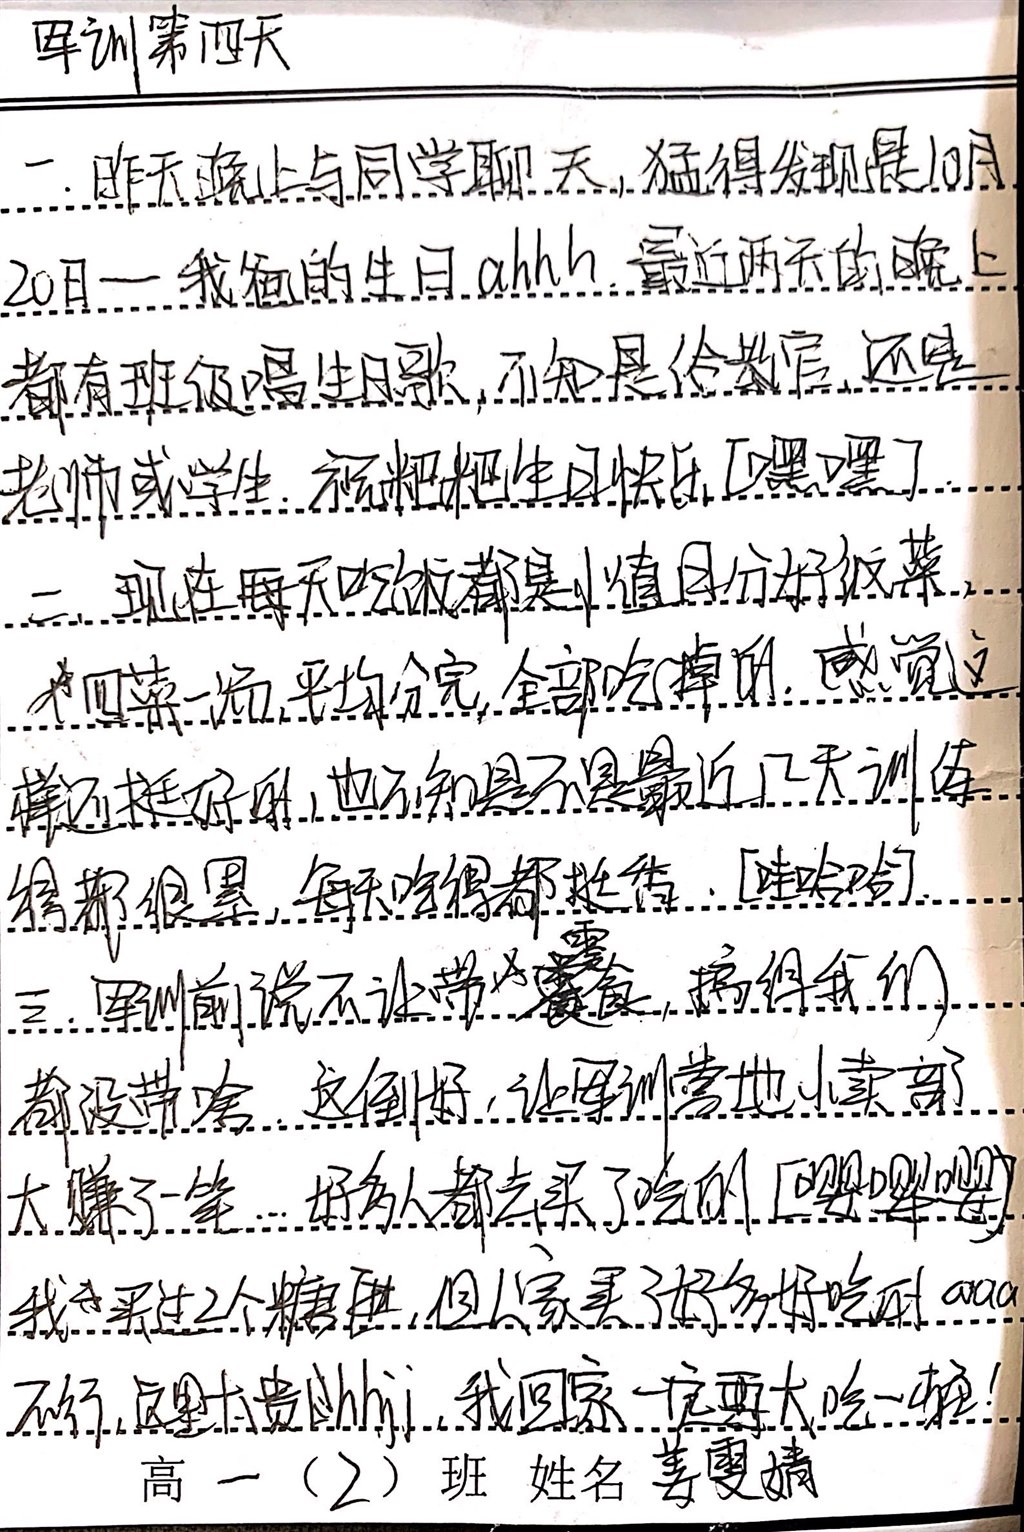 军训第四天
一.昨天晚上与同学聊天,猛得发现是10月
20日—我爸的生日ahhh.最近两天的晚上
都有班级唱生日歌,不知是给教官,还是
老师或学生.祝粑粑生日快乐[嘿嘿].
二.现在每天吃饭都是小值日分好饭菜,
四菜一汤,平均分完,全部吃掉的.感觉这
样还挺好的,也不知是不是最近几天训练
得都很累,每天吃得都挺香.[哇哈哈].
三.军训前说不让带零食,搞得我们
都没带啥.这倒好,让军训营地小卖部
大赚了一笔...好多人都去买了吃的[嘤嘤嘤]
我买过2个糖画,但人家买了好多好吃的aaaa
不行,这里太贵ahhjj,我回家一定要大吃一桩!
高一(2)班 姓名姜雯婧